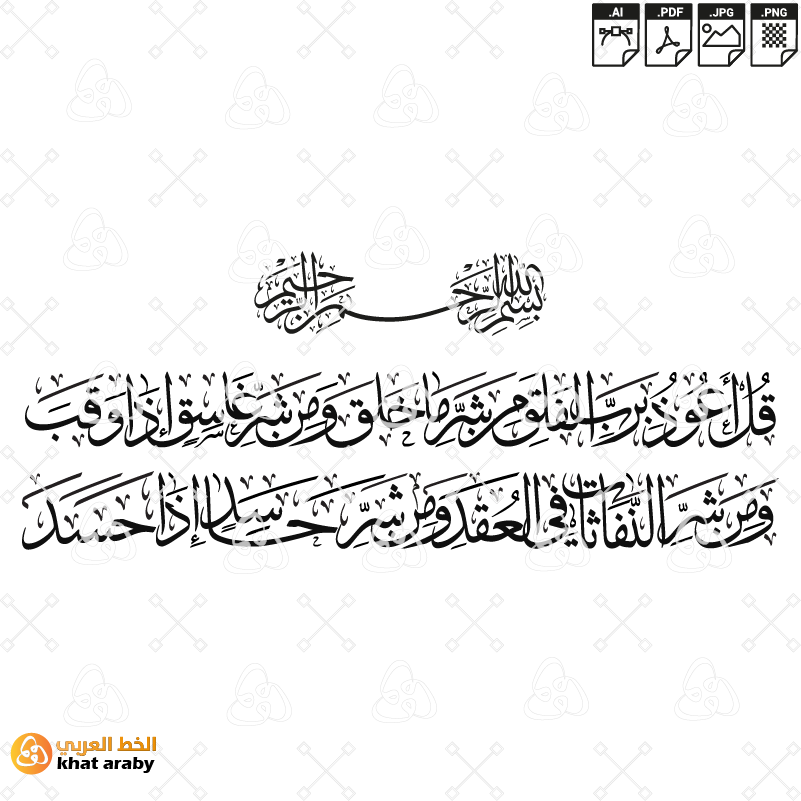 .AI .PDF .JPG .PNG
بسم الله الرحمن الرحيم
قُل أَعُوذُ بِرَبِّ الفَلَقِ مِن شَرِّ مَا خَلَقَ وَمِن شَرِّ غَاسِقٍ إِذَا وَقَبَ
وَمِن شَرِّ النَّفَّاثَاتِ فِي العُقَدِ وَمِن شَرِّ حَاسِدٍ إِذَا حَسَدَ
الخط العربي
khat araby